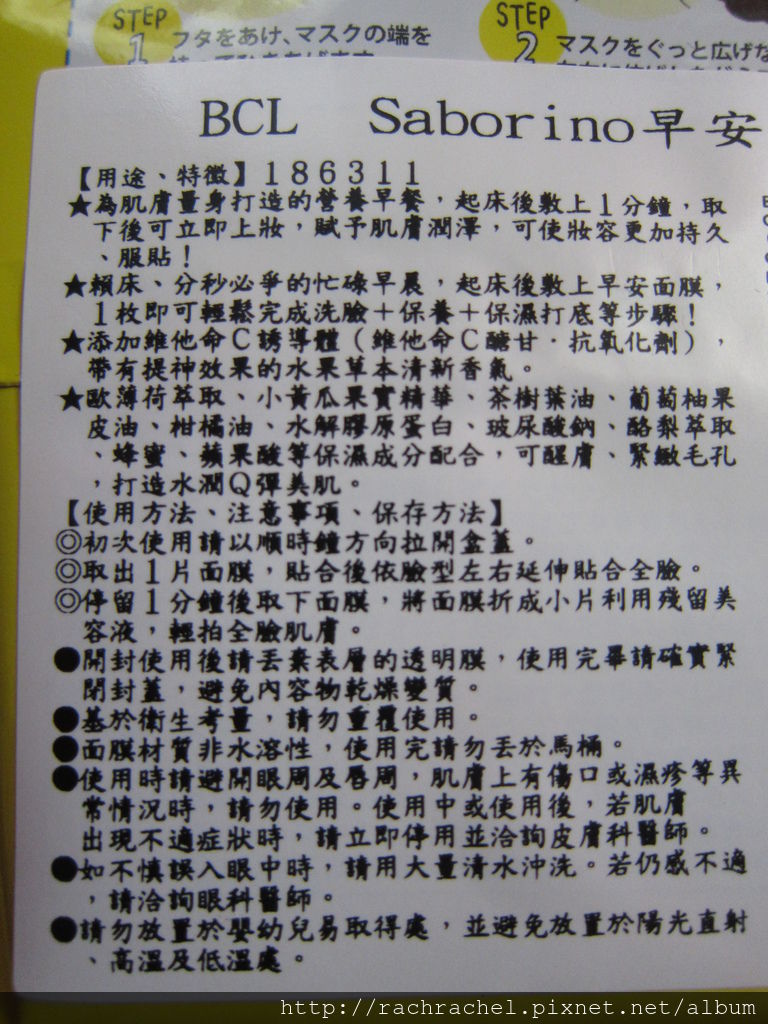 STEP
1
フタをあけ、マスクの端を
STEP
2
マスクをぐっと広げな
BCL Saborino早安
【用途、特徵】186311
★為肌膚量身打造的營養早餐，起床後敷上1分鐘，取
下後可立即上妝，賦予肌膚潤澤，可使妝容更加持久
、服貼！
★賴床、分秒必爭的忙碌早晨，起床後敷上早安面膜，
1枚即可輕鬆完成洗臉＋保養＋保濕打底等步驟！
★添加維他命C誘導體（維他命C醣甘‧抗氧化劑），
帶有提神效果的水果草本清新香氣。
★歐薄荷萃取、小黃瓜果實精華、茶樹葉油、葡萄柚果
皮油、柑橘油、水解膠原蛋白、玻尿酸鈉、酪梨萃取
、蜂蜜、蘋果酸等保濕成分配合，可醒膚、緊緻毛孔
，打造水潤Q彈美肌。
【使用方法、注意事項、保存方法】
◎初次使用請以順時鐘方向拉開盒蓋。
◎取出1片面膜，貼合後依臉型左右延伸貼合全臉。
◎停留1分鐘後取下面膜，將面膜折成小片利用殘留美
容液，輕拍全臉肌膚。
●開封使用後請丟棄表層的透明膜，使用完畢請確實緊
閉封蓋，避免內容物乾燥變質。
●基於衛生考量，請勿重覆使用。
●面膜材質非水溶性，使用完請勿丟於馬桶。
●使用時請避開眼周及唇周，肌膚上有傷口或濕疹等異
常情況時，請勿使用。使用中或使用後，若肌膚
出現不適症狀時，請立即停用並洽詢皮膚科醫師。
●如不慎誤入眼中時，請用大量清水沖洗。若仍感不適
，請洽詢眼科醫師。
●請勿放置於嬰幼兒易取得處，並避免放置於陽光直射
、高溫及低溫處。
http://rachrachel.pixnet.net/album